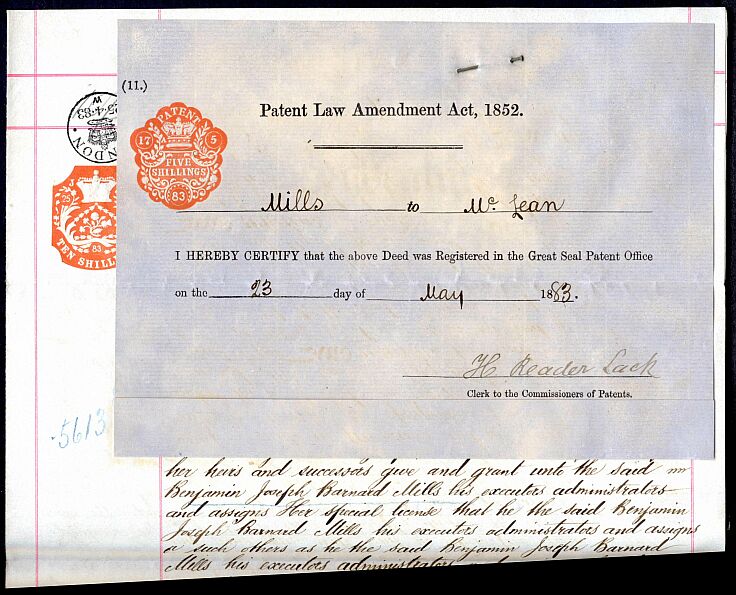 (11.)
Patent Law Amendment Act, 1852.
PATENT
17 5
FIVE
SHILLINGS
83
Mills to Mc Lean
I HEREBY CERTIFY that the above Deed was Registered in the Great Seal Patent Office
on the 23 day of May 1883.
H. Reader Lack
Clerk to the Commissioners of Patents.
W
4·83
NDON
25
83
TEN SHILL
5613
her heirs and successors give and grant unto the said
Benjamin Joseph Barnard Mills his executors administrators
and assigns Her special license that he the said Benjamin
Joseph Barnard Mills his executors administrators and assigns
or such others as he the said Benjamin Joseph Barnard
Mills his executors administrators